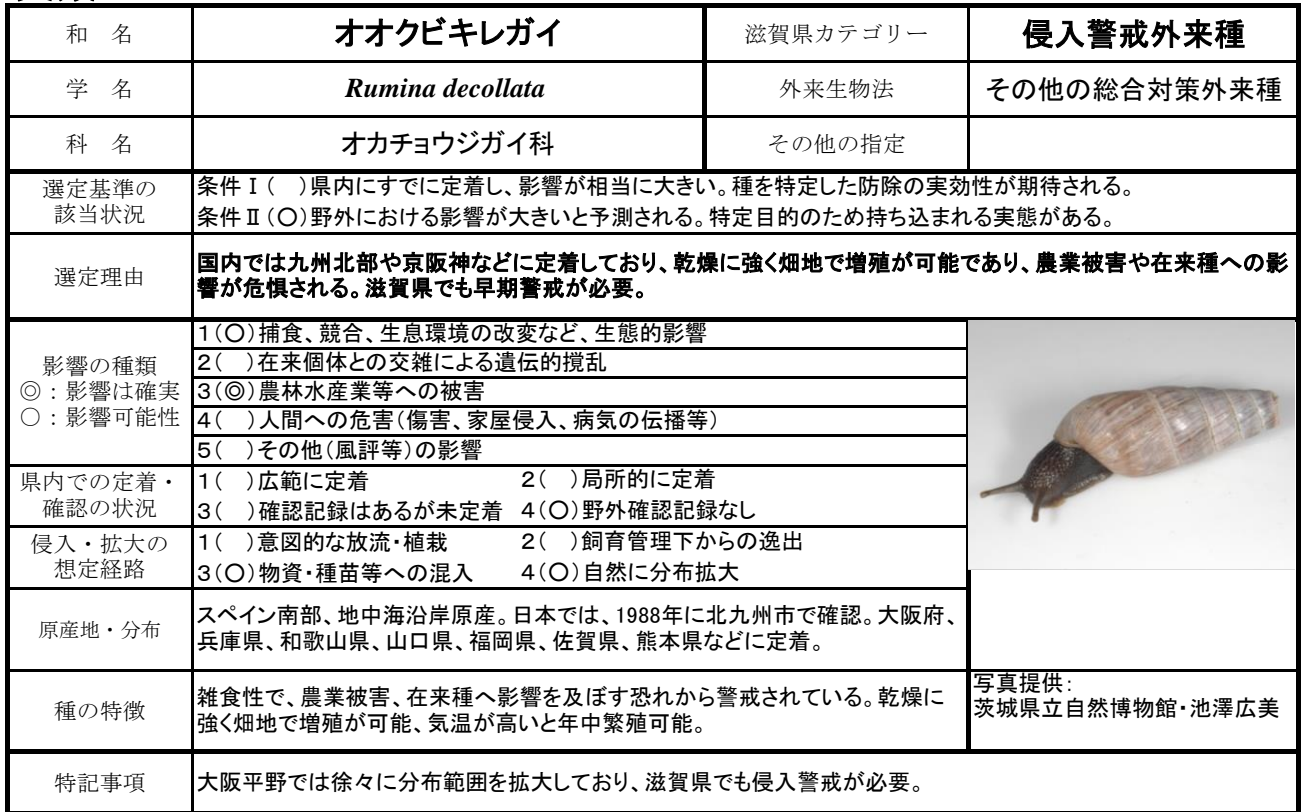 和　名
オオクビキレガイ
滋賀県カテゴリー
侵入警戒外来種
学　名
Rumina decollata
外来生物法
その他の総合対策外来種
科　名
オカチョウジガイ科
その他の指定
選定基準の
該当状況
条件Ⅰ(　)県内にすでに定着し、影響が相当に大きい。種を特定した防除の実効性が期待される。
条件Ⅱ(○)野外における影響が大きいと予測される。特定目的のため持ち込まれる実態がある。
選定理由
国内では九州北部や京阪神などに定着しており、乾燥に強く畑地で増殖が可能であり、農業被害や在来種への影
響が危惧される。滋賀県でも早期警戒が必要。
影響の種類
◎：影響は確実
○：影響可能性
1(○)捕食、競合、生息環境の改変など、生態的影響
2(　)在来個体との交雑による遺伝的撹乱
3(◎)農林水産業等への被害
4(　)人間への危害(傷害、家屋侵入、病気の伝播等)
5(　)その他(風評等)の影響
県内での定着・
確認の状況
1(　)広範に定着　2(　)局所的に定着
3(　)確認記録はあるが未定着　4(○)野外確認記録なし
侵入・拡大の
想定経路
1(　)意図的な放流・植栽　2(　)飼育管理下からの逸出
3(○)物資・種苗等への混入　4(○)自然に分布拡大
原産地・分布
スペイン南部、地中海沿岸原産。日本では、1988年に北九州市で確認。大阪府、
兵庫県、和歌山県、山口県、福岡県、佐賀県、熊本県などに定着。
種の特徴
雑食性で、農業被害、在来種へ影響を及ぼす恐れから警戒されている。乾燥に
強く畑地で増殖が可能、気温が高いと年中繁殖可能。
写真提供：
茨城県立自然博物館・池澤広美
特記事項
大阪平野では徐々に分布範囲を拡大しており、滋賀県でも侵入警戒が必要。